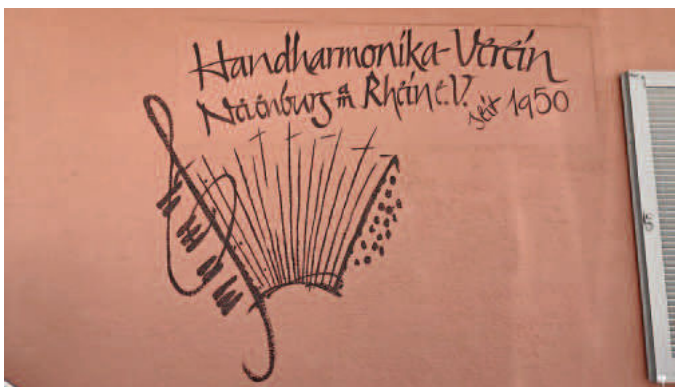 Handharmonika-Verein
Neuenburg am Rhein e.V. seit 1950